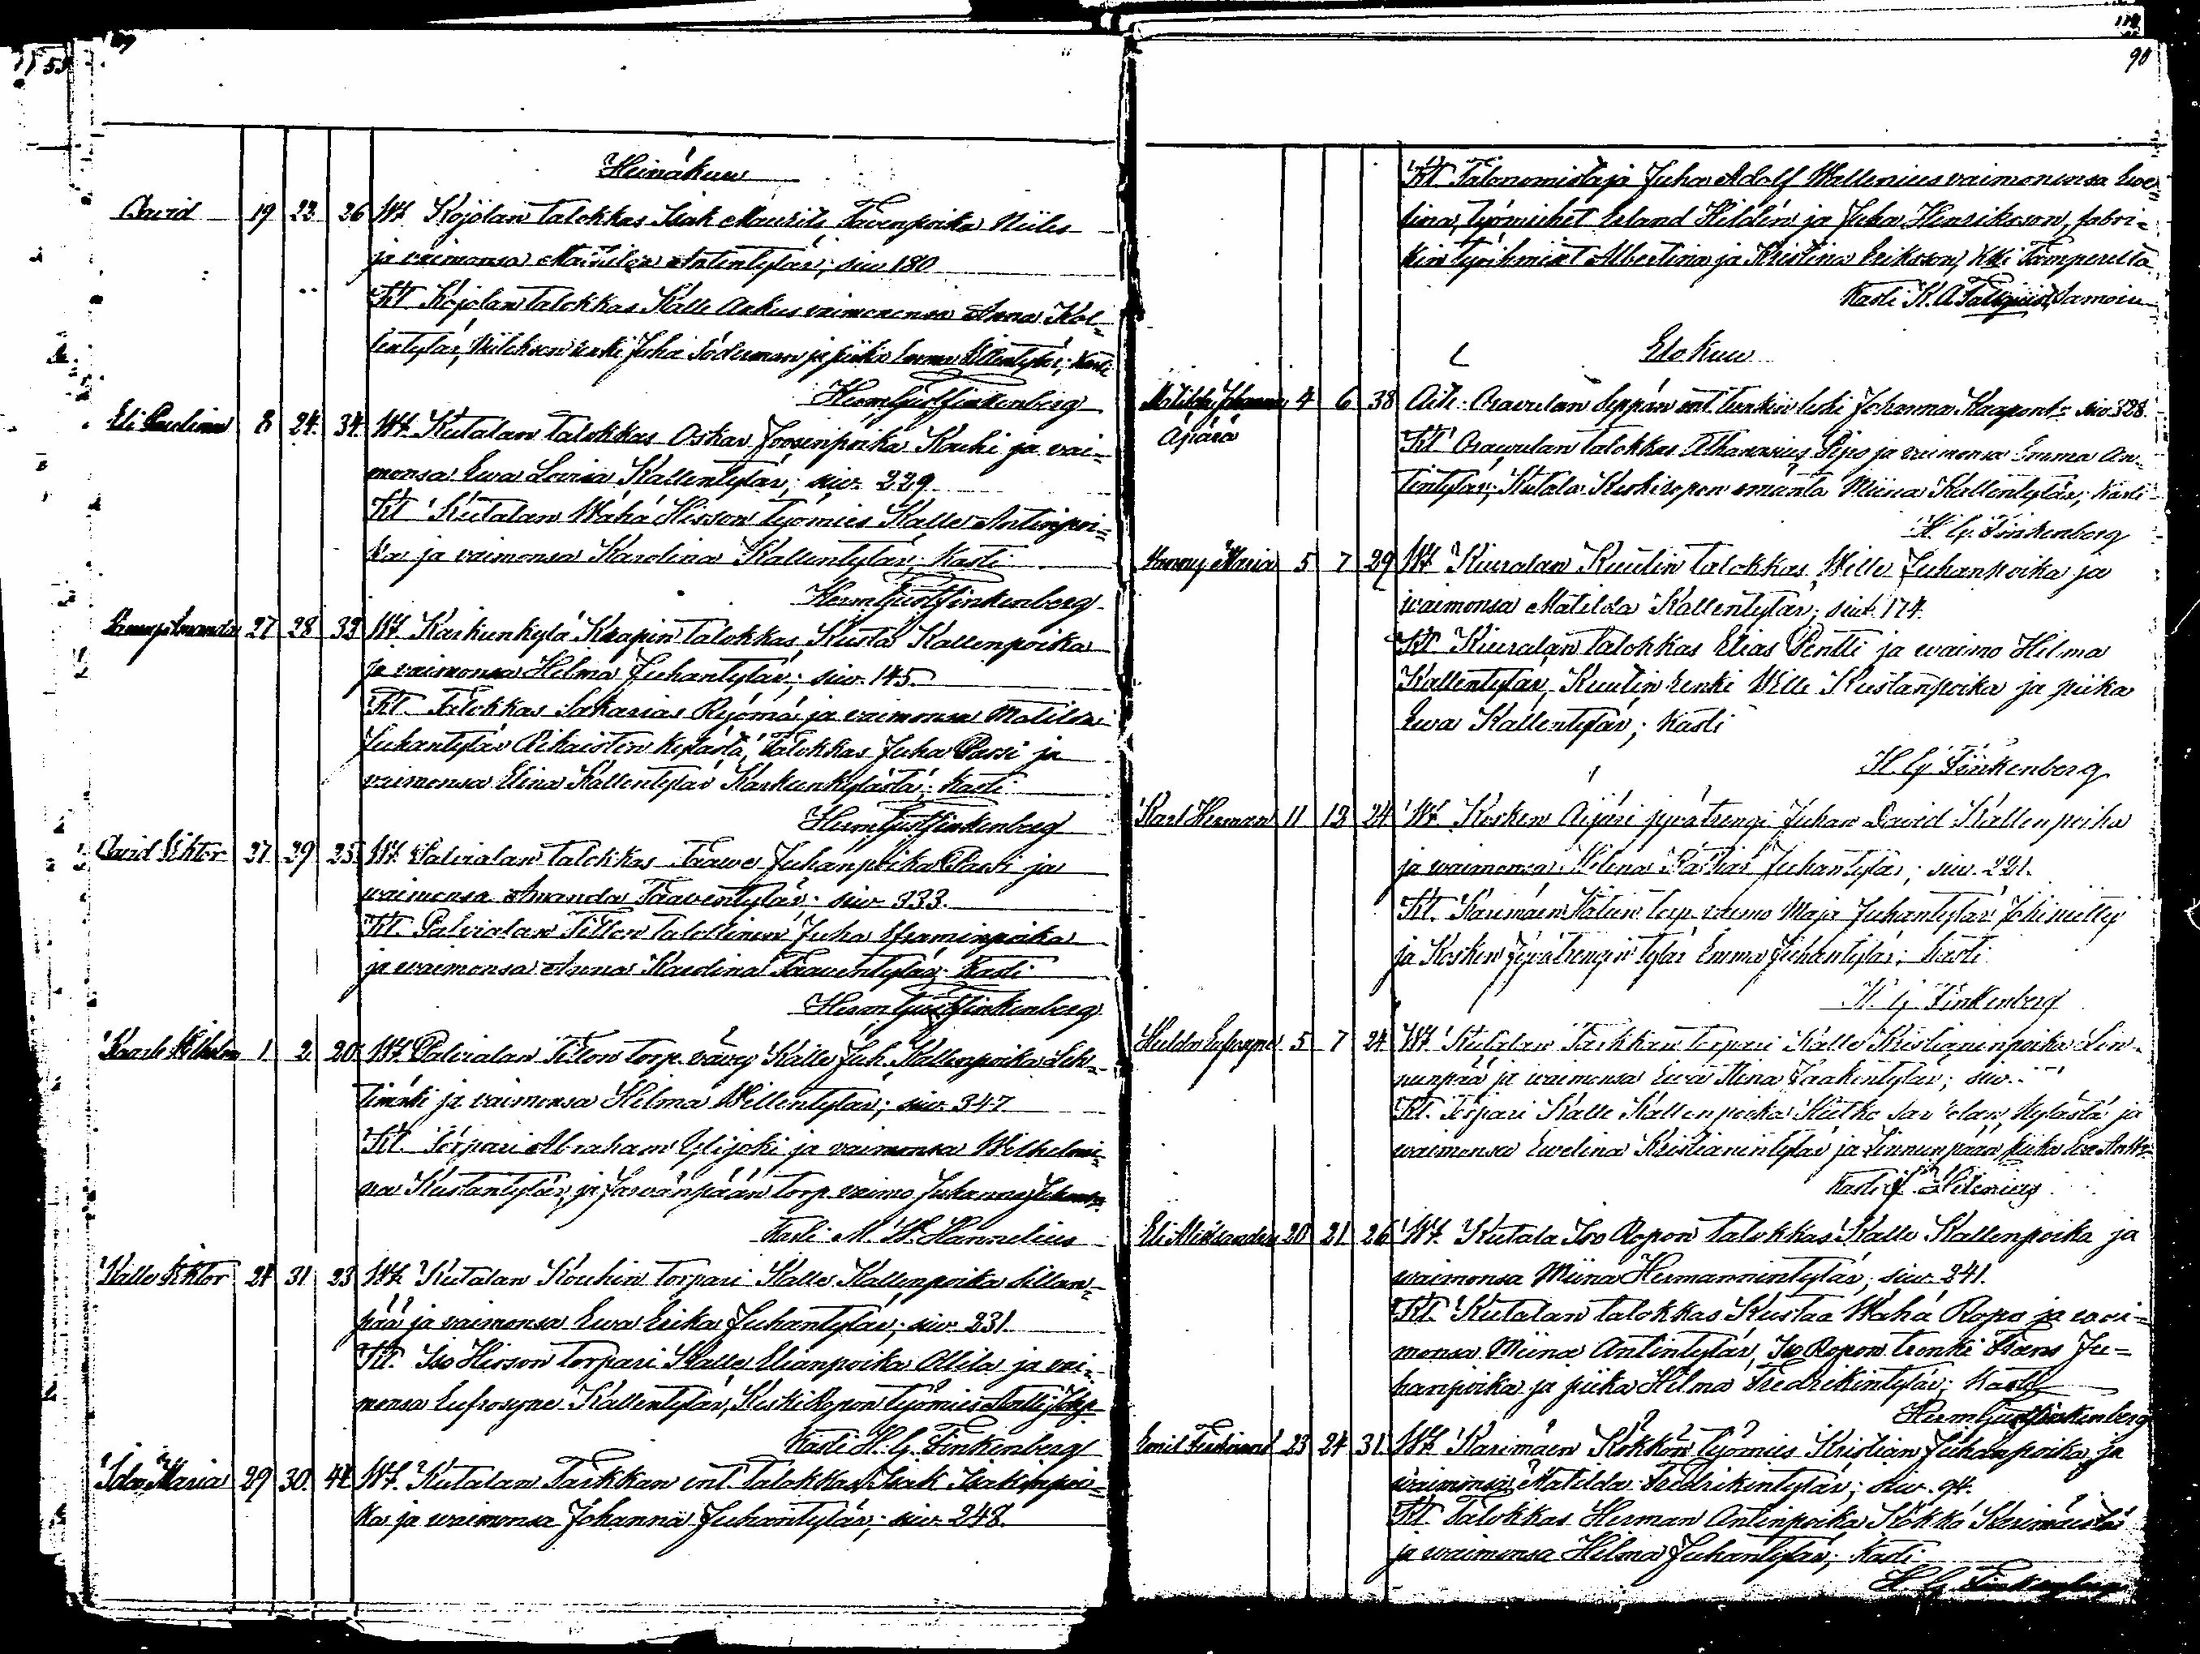 89
Heinäkuu
David 19 23 26 Wt. Kojolan talokkas Isak Maurits Taavenpoika Niiles
ja vaimonsa Matilda Antintytär; siw. 180
Kt. Kojolan talokkas Kalle Aakus vaimonensa Anna Kal-
lentytär, renki Juha Söderman ja piika Emma; Kasti
Herm Gust Finkenberg
Eli Paulina 8 24. 34. Wt. Kutalan talokkas Oskar Joosenpoika Kouhi ja vai-
monsa Ewa Lovisa Kallentytär; siw. 229.
Kt Kutalan Wähä Hisson työmies Kalle Antinpoi-
ka ja vaimonsa Karolina Kallentytär; Kasti
Herm Gust Finkenberg
Fanny Amanda 27 28 33 Wt. Karkunkylä Knapin talokkas Kusta Kallenpoika
ja vaimonsa Helma Juhantytär; siw. 145.
Kt. Talokkas Sakarias Ryömä ja vaimonsa Matilda
Juhantytär Rikaisten kylästä, Talokkas Juha Passi ja
vaimonsa Elina Kallentytär Karkunkylästä; Kasti
Herm Gust Finkenberg
David Viktor 27 29 25 Wt. Palvialan talokkas Taawe Juhanpoika Pusti ja
waimonsa Amanda Taaventytär; siw. 333.
Kt. Palvialan Tilton talollinen Juha Eframinpoika
ja waimonsa Anna Karolina Taaventytär; Kasti
Herm Gust Finkenberg
Kaarle Wilhelm 1 2 20 Wt. Palvialan Tilton torp. vävy Kalle Juh. Kallenpoika Leh-
timäki ja vaimonsa Helma Willentytär; siw. 347
Kt. Torpari Abraham Ylijoki ja vaimonsa Wilhelmi-
na Kustantytär, ja Järvänpään torp. vaimo Juhanna
Kasti M. W. Hannelius
Kalle Viktor 24 31. 23 Wt. Kutalan Kouhin torpari Kalle Kallenpoika Sillan-
pää ja vaimonsa Ewa Erika Juhantytär; siw. 231.
Kt. Iso Hisson torpari Kalle Elianpoika Ollila ja vai-
monsa Eufrosyne Kallentytär, Keski Ropon työmies
Kasti H. G. Finkenberg
Ida Maria 29 30. 42 Wt. Kutalan Tarkkan ent. talokkas Isak Isakinpoi-
ka ja waimonsa Johanna Juhantytär; siw. 248.
90
Kt. Talonomistaja Juha Adolf Wallenius vaimonensa Ewe-
lina, työmiehet Erland Hildén ja Juha Henrikson, fabri-
kin työihmiset Albertina ja Kristina Erikson, kaikki Tampereelta.
Kasti K. A. Fallqvist samoin
Elokuu
Matilda Johanna 4 6 38 Äiti: Osavulan Seppän ent. leski Johanna Knapont: siw. 328.
Äpärä
Kt Osavulan talokkas Athanasius Seps ja vaimonsa Emma An-
tintytär, Kutala Keskiropon emäntä Miina Kallentytär; Kasti
H. G. Finkenberg
Hanny Maria 5 7 29 Wt. Kiuralan Kuutin talokkas Wille Juhanpoika ja
waimonsa Matilda Kallentytär; siw. 174.
Kt. Kiuralan talokkas Elias Pentti ja waimo Hilma
Kallentytär, Kuutin renki Wille Kustanpoika ja piika
Ewa Kallentytär; Kasti
H. G. Finkenberg
Karl Herman 11 13 24 Wt. Kosken Äijäri jyvätrengi Juhan David Kallenpoika
ja waimonsa Helena Juhantytär; siw. 221.
Kt. Karimäen torp. vaimo Maja Juhantytär Jokiniitty
ja Kosken Jyvätrengin tytär Emma Juhantytär; Kasti
H. G. Finkenberg
Hulda Eufrosyne 5 7 24 Wt Kutalan Tarkkan torpari Kalle Kristianinpoika Lin-
nunpää ja waimonsa Ewa Stina Jaakentytär; siw.
Kt. Torpari Kalle Kallenpoika kylästä ja
waimonsa Ewelina Kristianintytär ja Linnunpään piika
Kasti
Eli Aleksandra 20 21 26 Wt. Kutala Iso Ropon talokkas Kalle Kallenpoika ja
waimonsa Miina Hermannintytär; siw. 241.
Kt. Kutalan talokkas Kustaa Wähä Ropo ja wai-
monsa Miina Antintytär, Iso Ropon trenki Frans Ju-
hanpoika ja piika Hilma Fredrikintytär; Kasti
Herm Gust Finkenberg
Emil Ferdinand 23 24 31 Wt. Karimäen Kokkon työmies Kristian Juhanpoika ja
waimonsa Matilda Fredrikentytär; siw. 94.
Kt Talokkas Herman Antinpoika Kokko Karimäestä
ja waimonsa Hilma Juhantytär; Kasti
H. G. Finkenberg